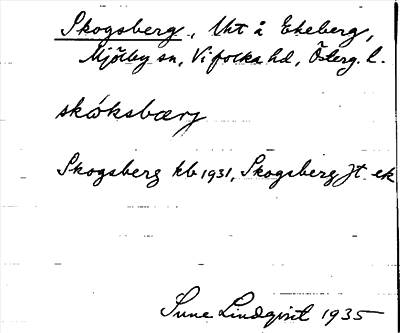 Skogsberg, Uht å Ekeberg,
Mjölby sn, Vifolka hd, Österg. l.
skóksbærj
Skogsberg kb 1931, Skogsberg Jt ek
Sune Lindqvist 1935